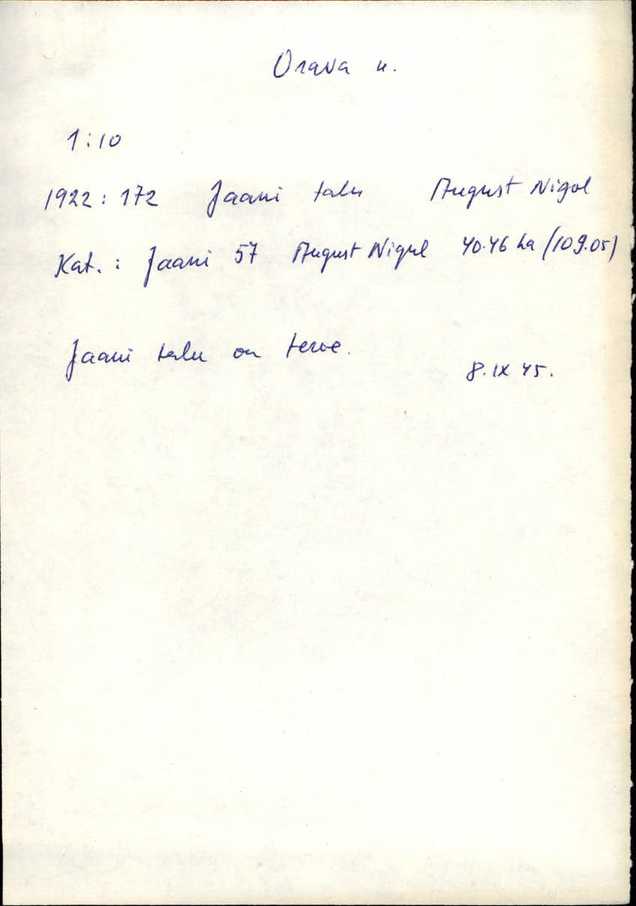 Orava k.
1:10
1922: 172 Jaani talu August Nigol
Kat. : Jaani 57 August Nigul 40.46 ha (109.05)
Jaani talu on terve.
8. IX 45.